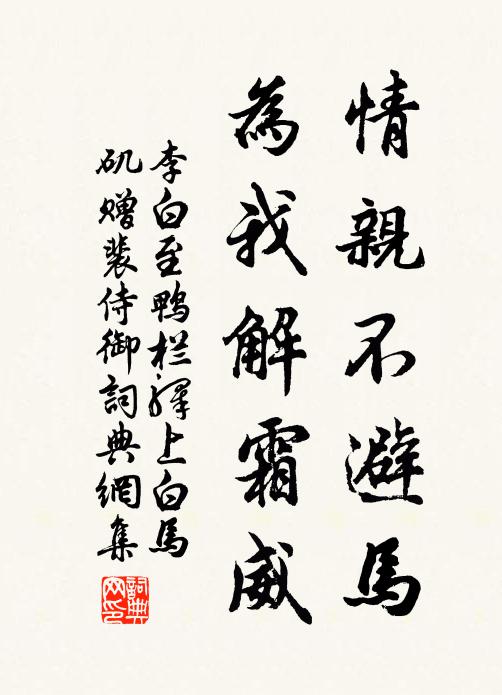 情親不避馬
為我解霜威
李白至鴨栏驛上白馬
矶赠裴侍御詞典網集
詞典网印